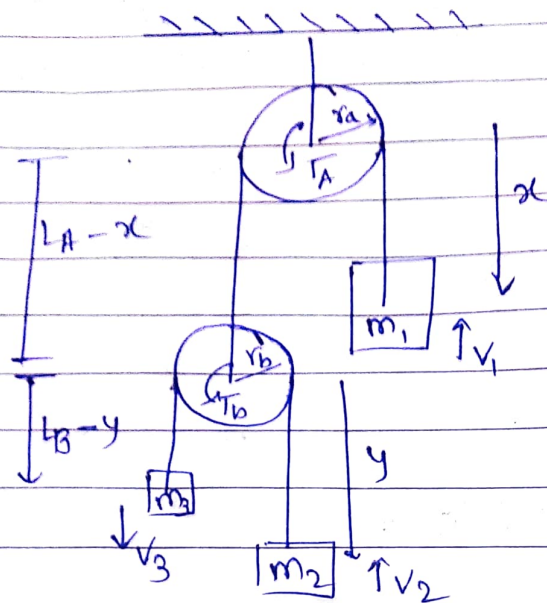 ra
TA
x
LA - x
m1
↑V1
rb
Tb
LB - y
y
m3
↓V3
m2
↑V2